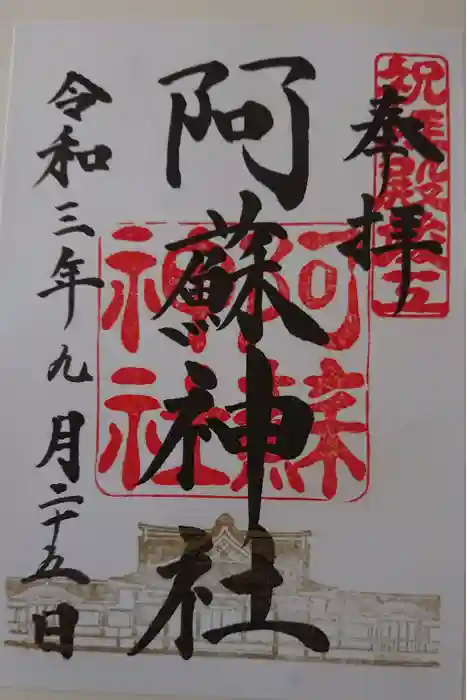 祝拝殿竣工
奉拝
阿蘇神社
阿蘇
神社
令和三年九月二十五日